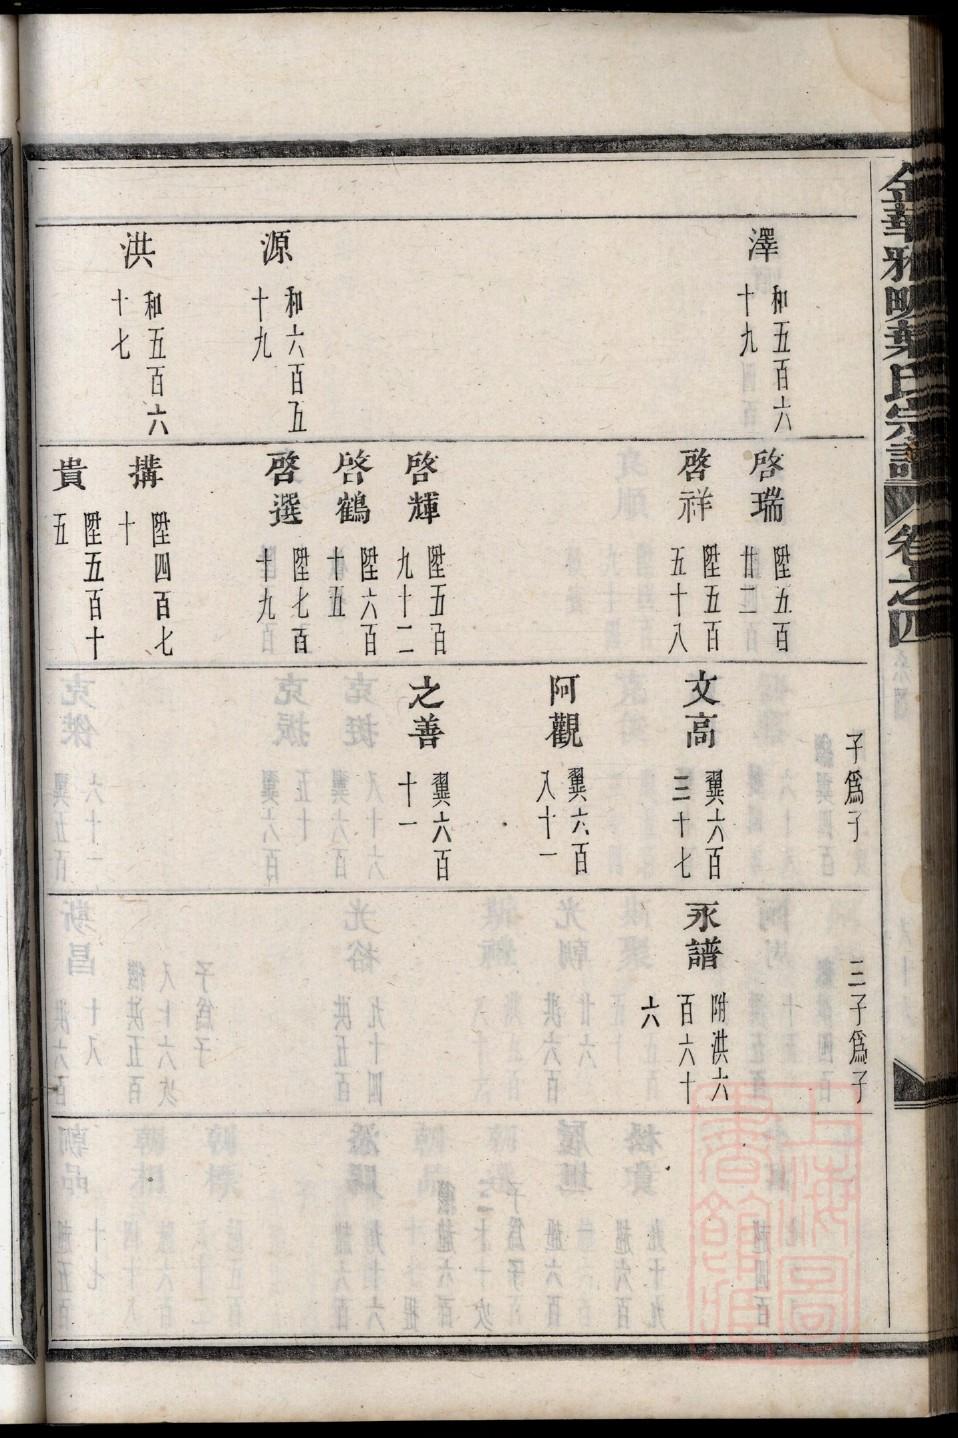 金華雅畈葉氏宗譜 卷之四
澤 和五百六十九
源 和六百五十九
洪 和五百六十七
啓瑞 陞五百廿二
啓祥 陞五百五十八
啓輝 陞五百九十二
啓鶴 陞六百十五
啓選 陞七百十九
搆 陞四百七十
貴 陞五百十五
子爲子
文高 翼六百三十七
阿觀 翼六百八十一
之善 翼六百十一
三子爲子
永譜 附洪六百六十六